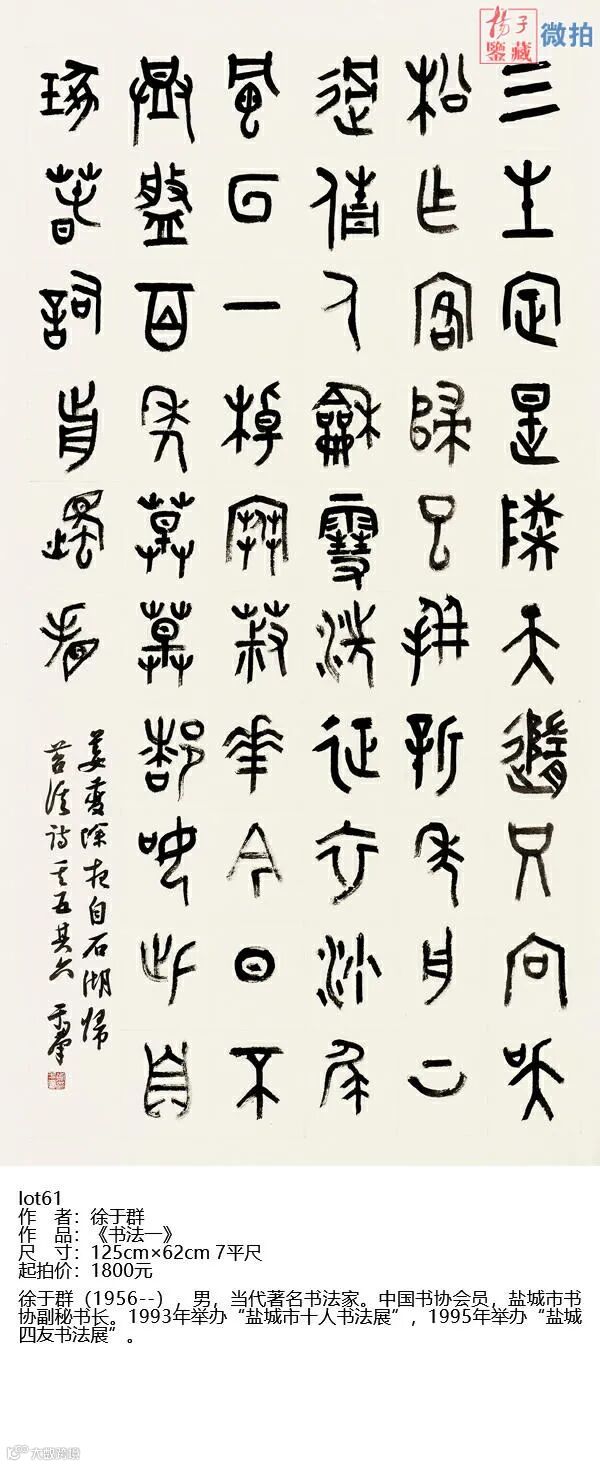 揚子
鑒藏
微拍
三生定是陸天隨只向吳
松作客歸已拚新年舟上
過倩人和雪洗征衣沙尾
風回一棹寒椒花今日不
登盤百年草草都如此自
琢春詞剪燭看
姜夔除夜自石湖歸
苕溪詩其五其六 于群
lot61
作 者：徐于群
作 品：《书法一》
尺 寸：125cm×62cm 7平尺
起拍价：1800元
徐于群（1956--），男，当代著名书法家。中国书协会员，盐城市书
协副秘书长。1993年举办“盐城市十人书法展”，1995年举办“盐城
四友书法展”。
大数跨境